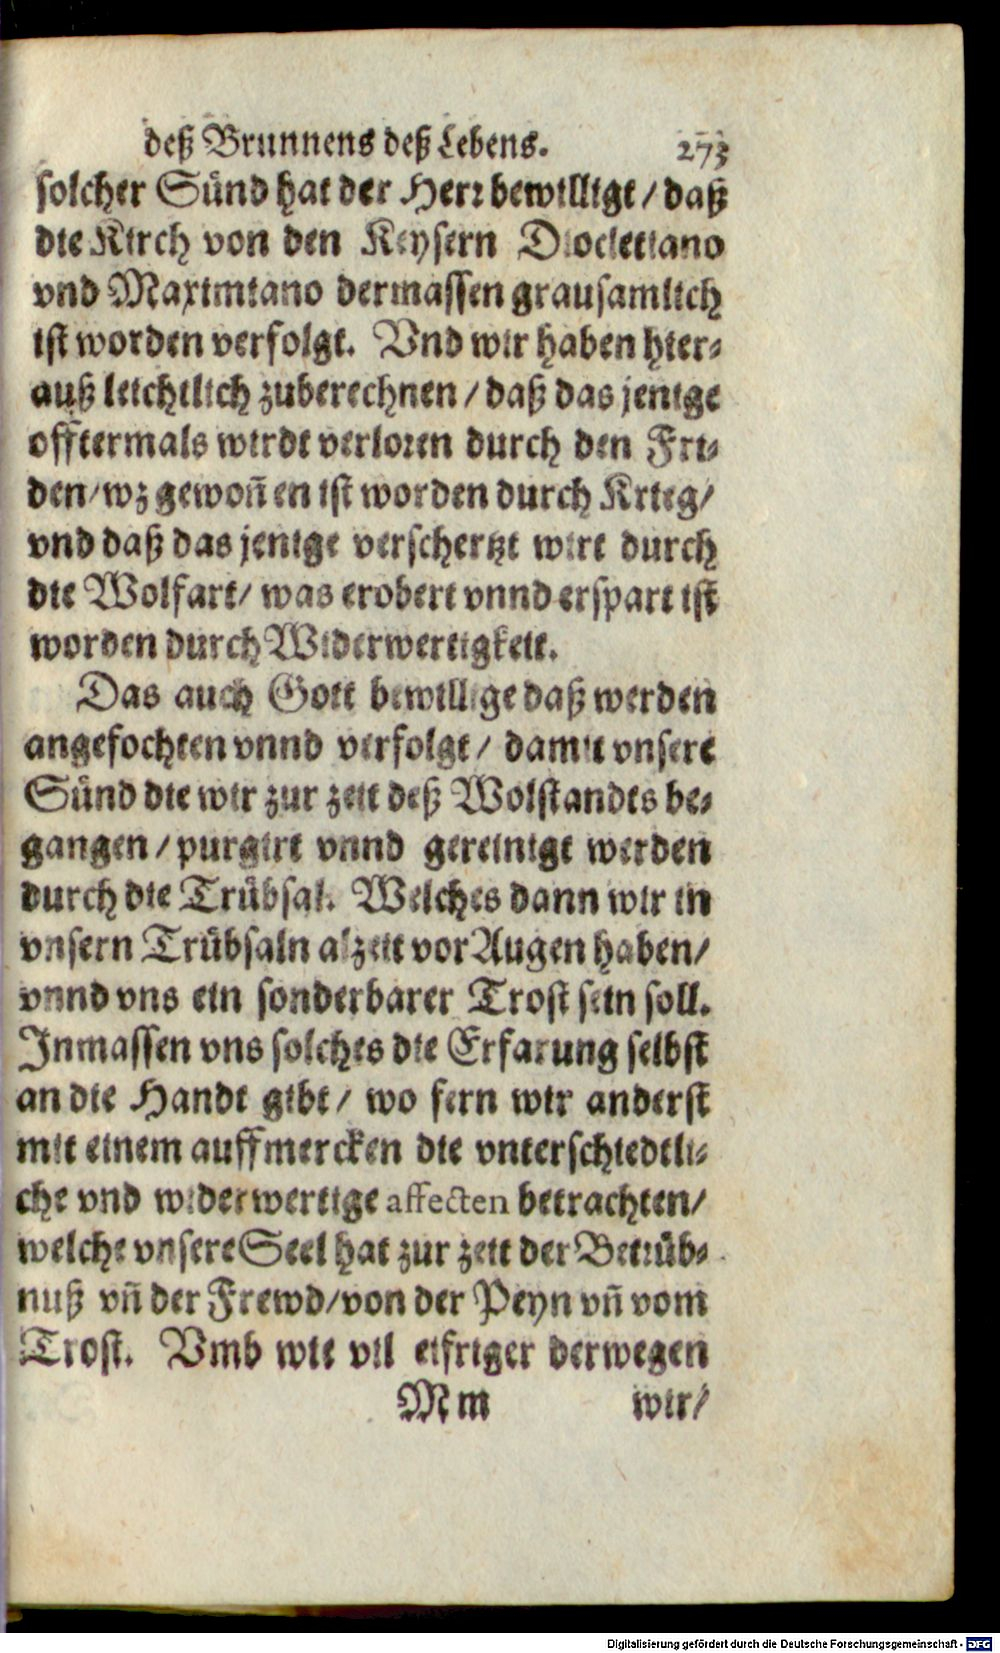 deß Brunnens deß Lebens. 273
solcher Sünd hat der Herr bewilligt / daß
die Kirch von den Keysern Diocletiano
vnd Maximiano dermassen grausamlich
ist worden verfolgt. Vnd wir haben hier-
auß leichtlich zuberechnen / daß das jenige
offtermals wirdt verloren durch den Fri-
den / wz gewoñen ist worden durch Krieg /
vnd daß das jenige verschertzt wirt durch
die Wolfart / was erobert vnnd erspart ist
worden durch Widerwertigkeit.
Das auch Gott bewillige daß werden
angefochten vnnd verfolgt / damit vnsere
Sünd die wir zur zeit deß Wolstandts be-
gangen / purgirt vnnd gereinigt werden
durch die Trübsal. Welches dann wir in
vnsern Trübsaln alzeit vor Augen haben /
vnnd vns ein sonderbarer Trost sein soll.
Inmassen vns solches die Erfarung selbst
an die Handt gibt / wo fern wir anderst
mit einem auffmercken die vnterschiedtli-
che vnd widerwertige affecten betrachten /
welche vnsere Seel hat zur zeit der Betrüb-
nuß vñ der Frewd / von der Peyn vñ vom
Trost. Vmb wie vil eifriger derwegen
Mm wir /
Digitalisierung gefördert durch die Deutsche Forschungsgemeinschaft - DFG